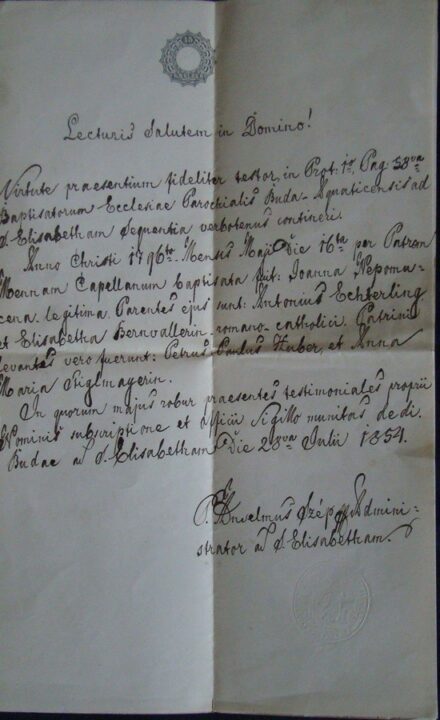 Lecturis Salutem in Domino!
Virtute praesentium fideliter testor, in Prot: 1o, Pag: 38va
Baptisatorum Ecclesiae Parochialis Buda-Aquaticensis ad
S. Elisabetham Sequentia verbotenus contineri.
Anno Christi 1796to Mensis Maji Die 16ta per Patrem
Mennam Capellanum baptisata fuit: Joanna Nepomu-
cena. legitima. Parentes ejus sunt: Antonius Echterling
et Elisabetha Bernvallerin. romano-catholici. Patrini
levantes vero fuerunt: Petrus Paulus Huber, et Anna
Maria Siglmayerin.
In quorum majus robur praesentes testimoniales proprii
Nominis subscriptione et officii Sigillo munitas dedi.
Budae ad S. Elisabetham Die 28va Julii 1854.
P. Anselmus Szép Admini-
strator ad S. Elisabetham.